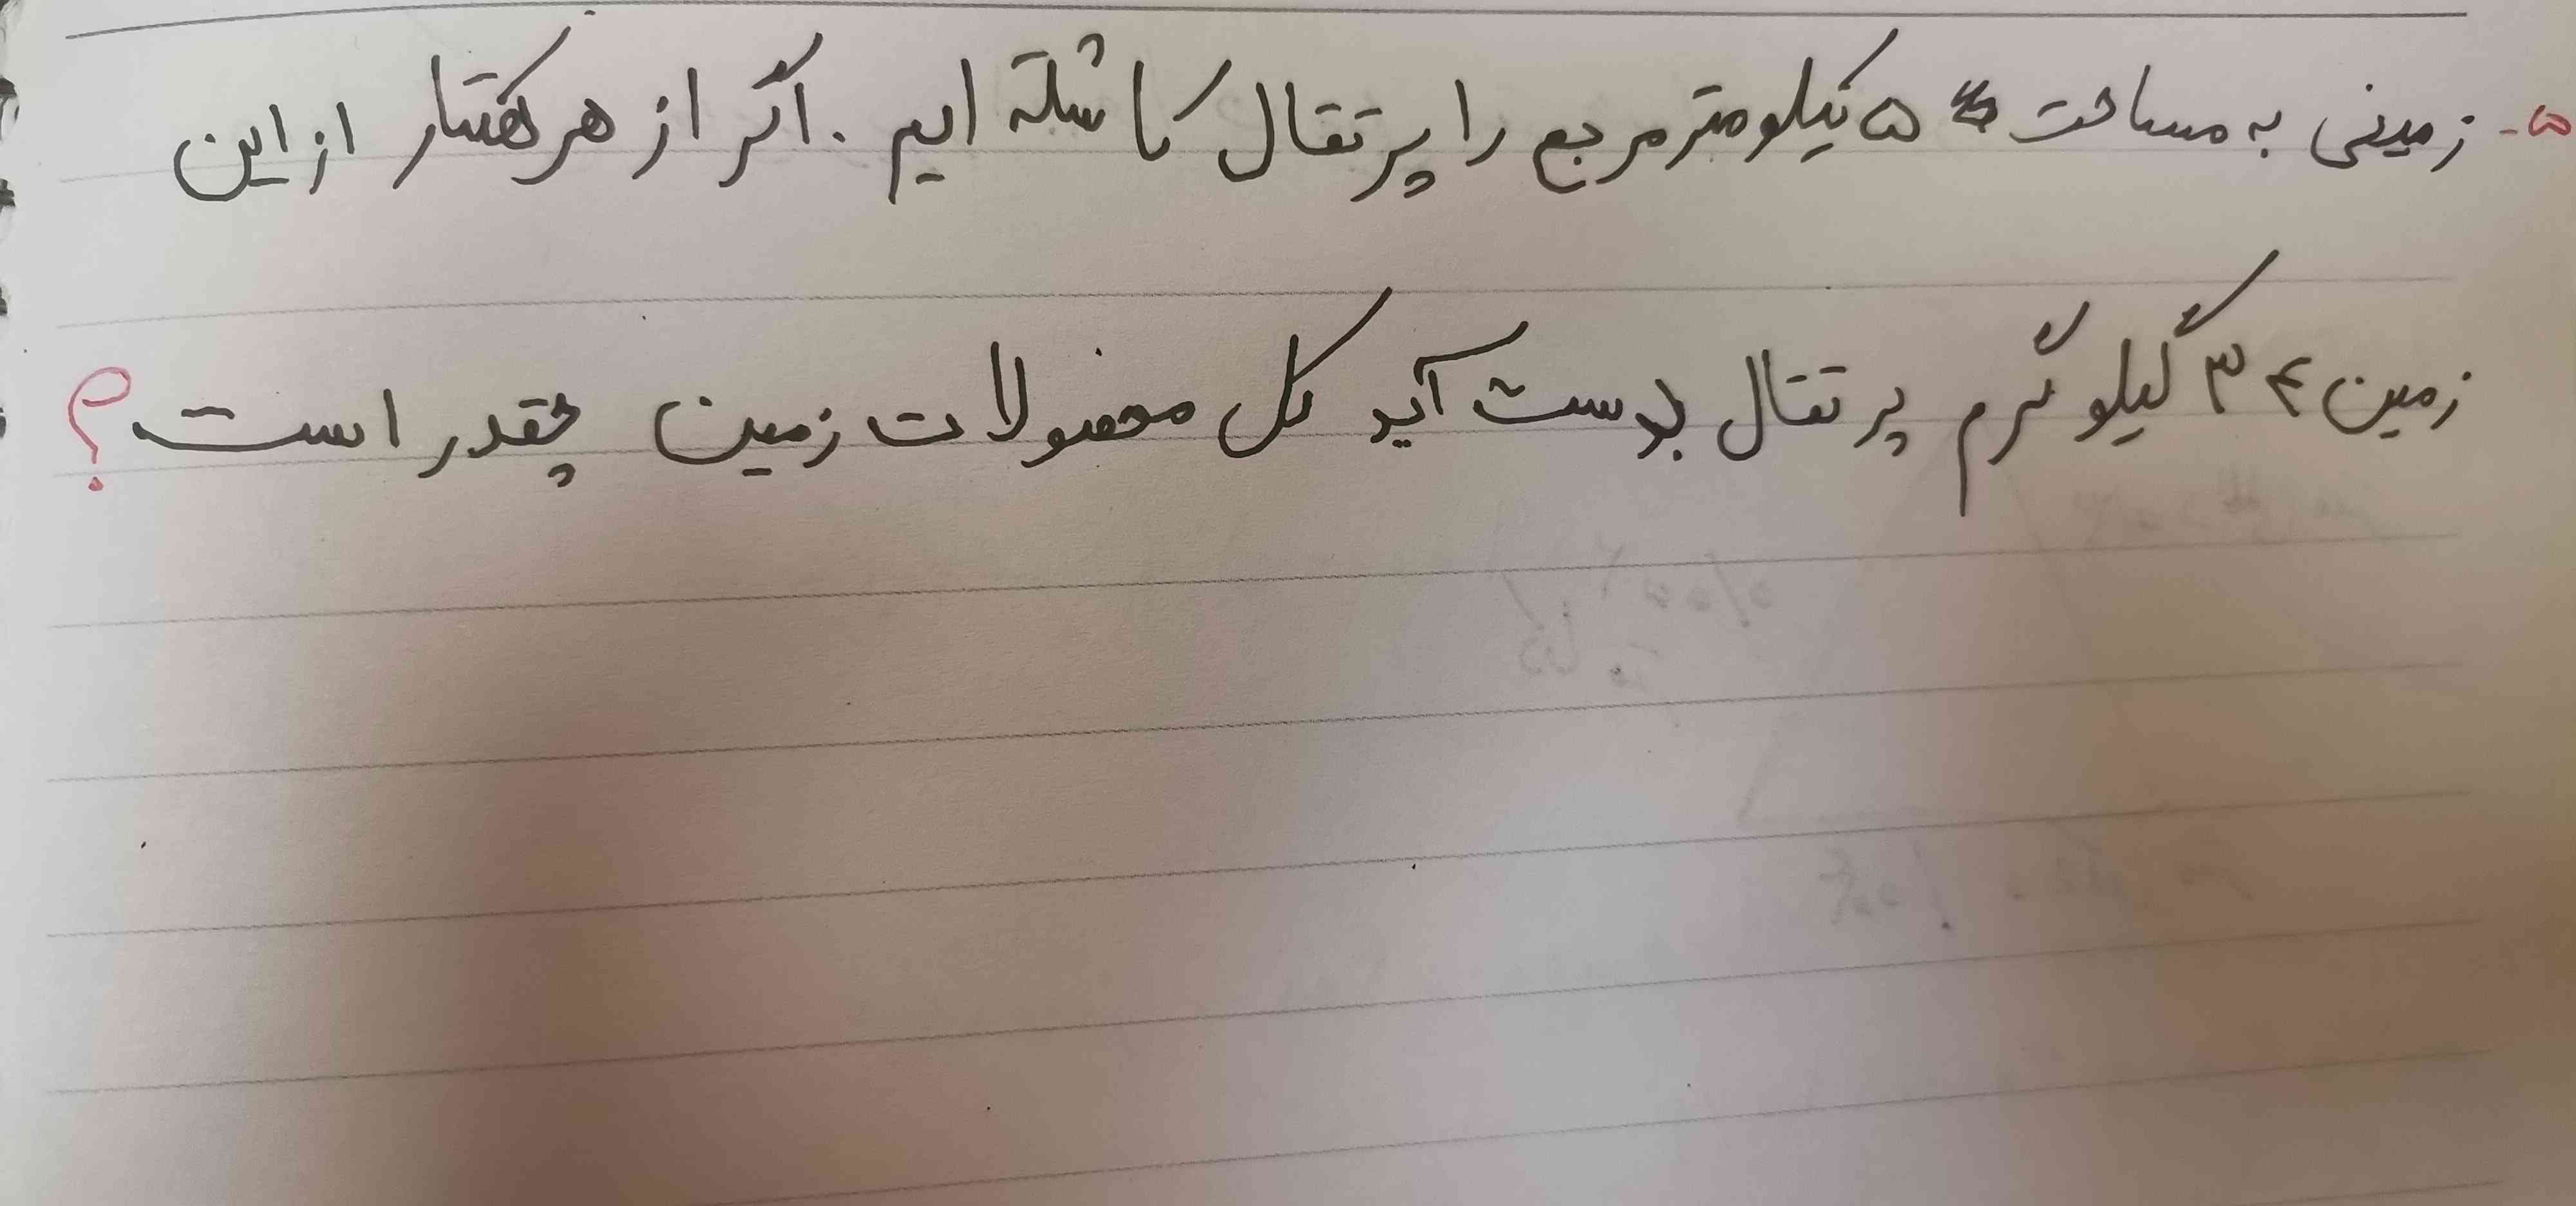 ۵- زمینی به مساحت ۵ کیلومتر مربع را پرتقال کاشته ایم . اگر از هر هکتار از این
زمین ۳۴ کیلوگرم پرتقال بدست آید کل محصولات زمین چقدر است ؟